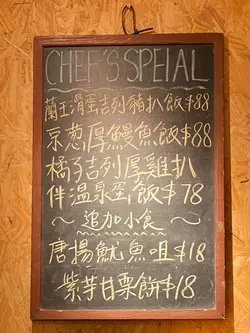 CHEF'S SPEIAL
蘭王滑蛋吉列豬扒飯$88
京葱厚鰻魚飯$88
橘子吉列厚雞扒
伴温泉蛋飯$78
~追加小食~
唐揚魷魚咀$18
紫芋甘栗餅$18